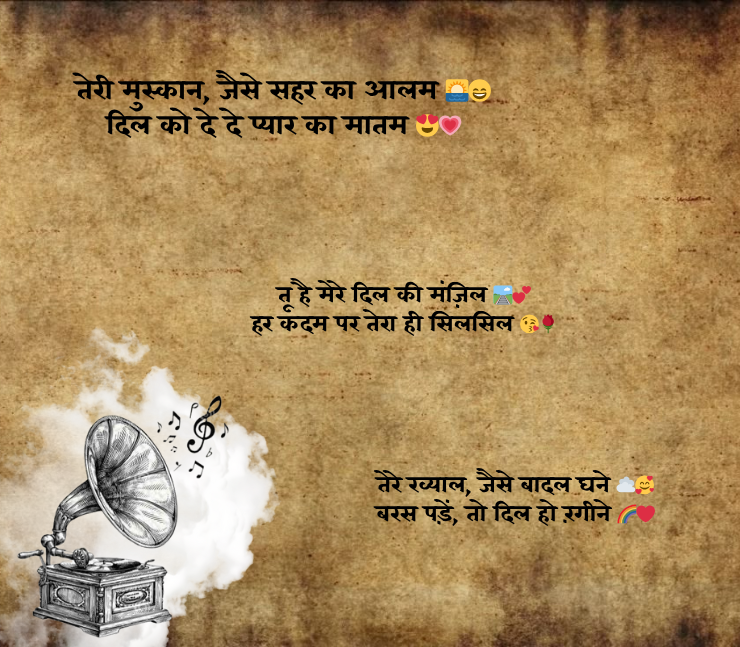 तेरी मुस्कान, जैसे सहर का आलम 🌅😄
दिल को दे दे प्यार का मातम 😍💗
तू है मेरे दिल की मंज़िल 🛤️💕
हर कदम पर तेरा ही सिलसिल 😘🌹
तेरे ख्याल, जैसे बादल घने ☁️🥰
बरस पड़ें, तो दिल हो रंगीने 🌈❤️